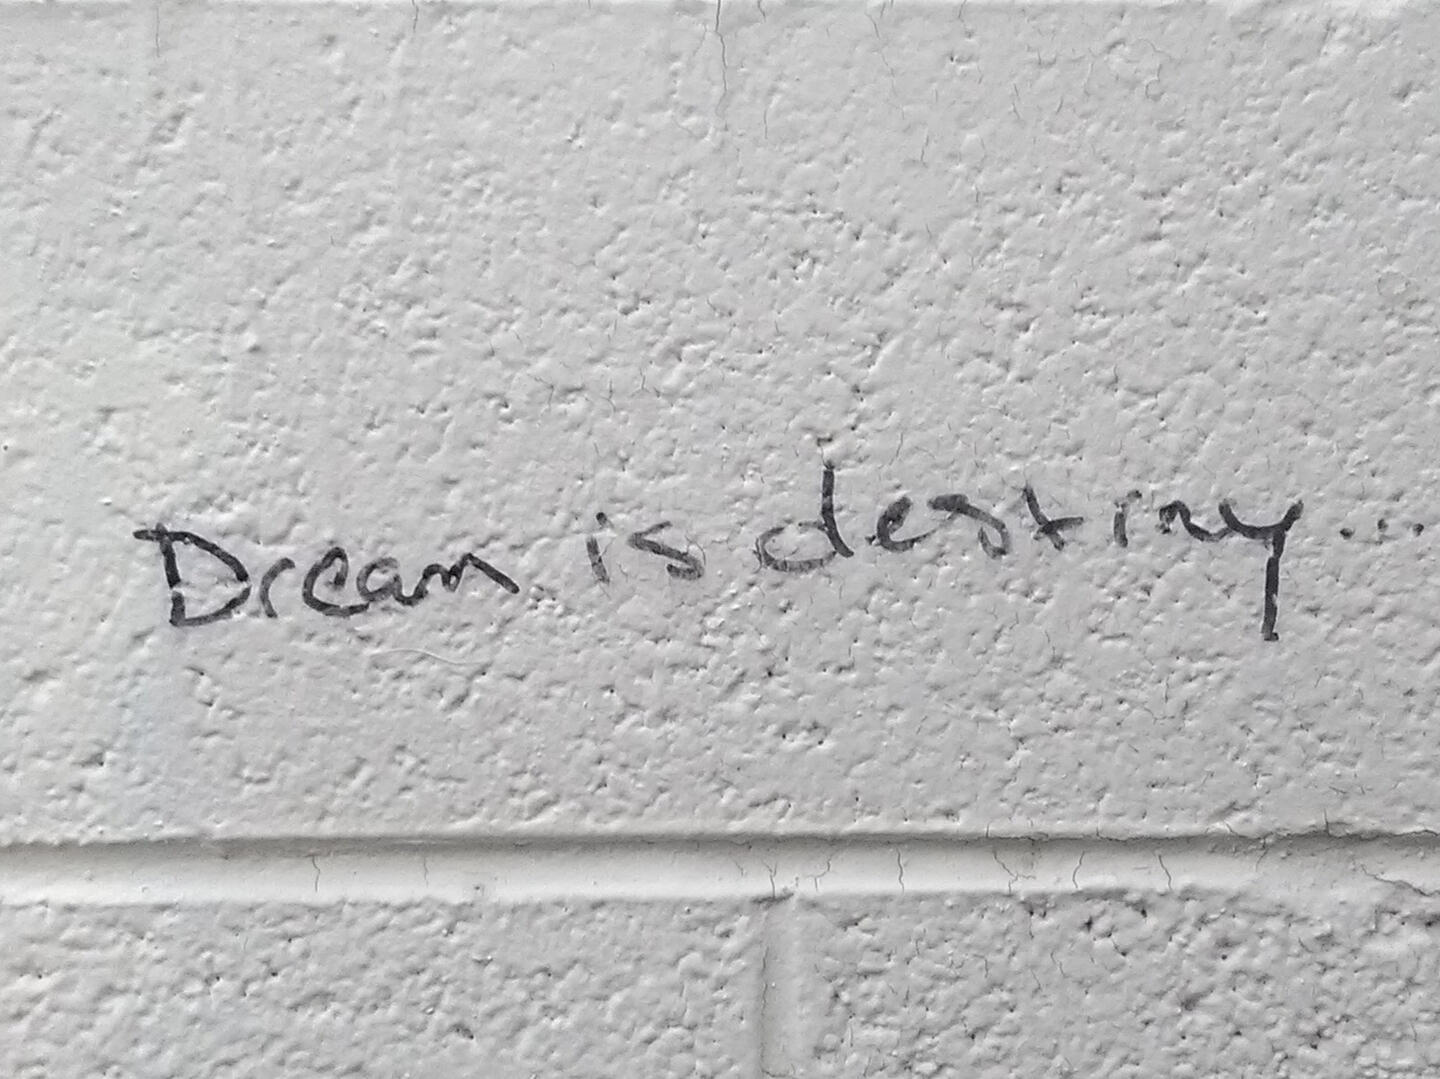 Dream is destiny...